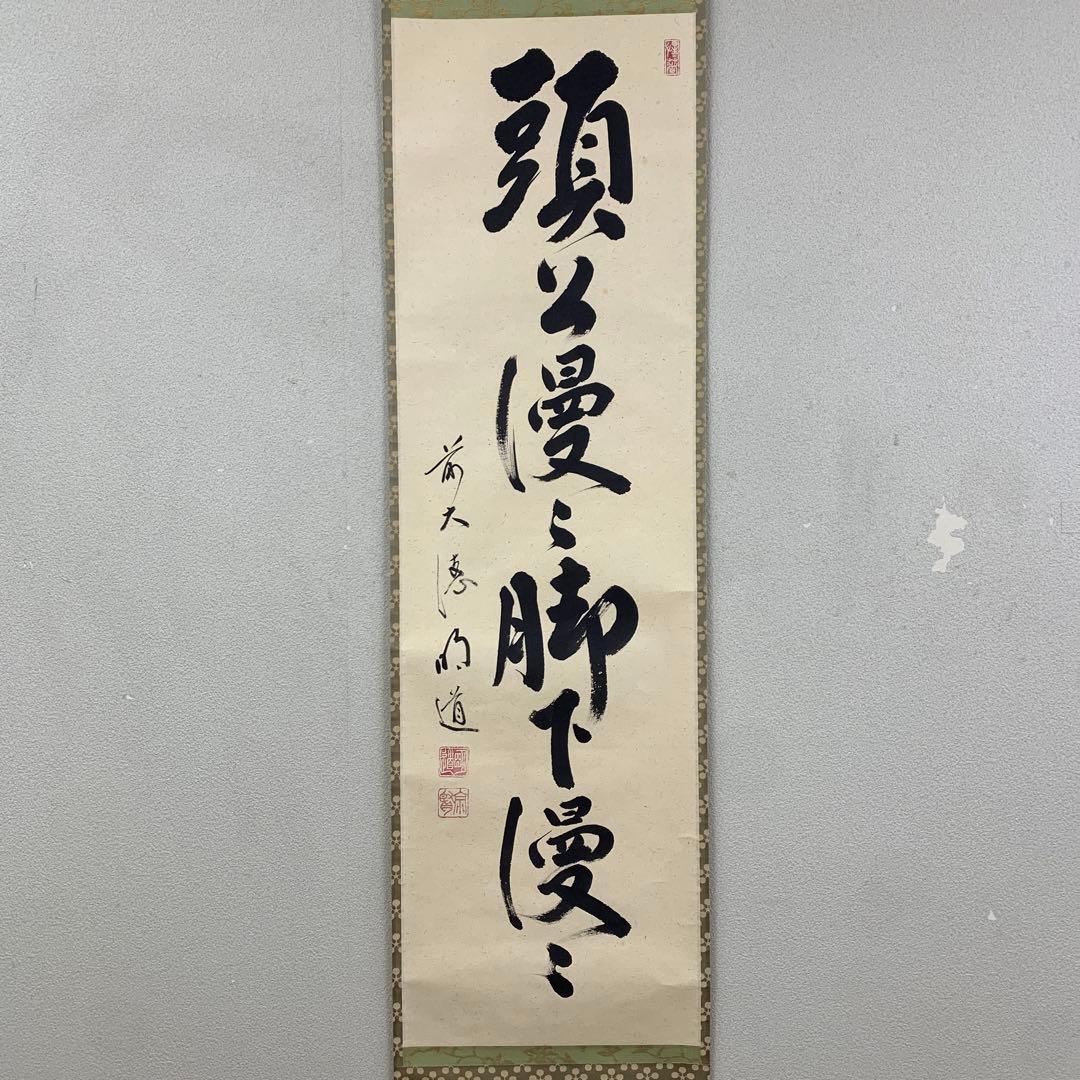 頭上漫々脚下漫々
前大徳明道